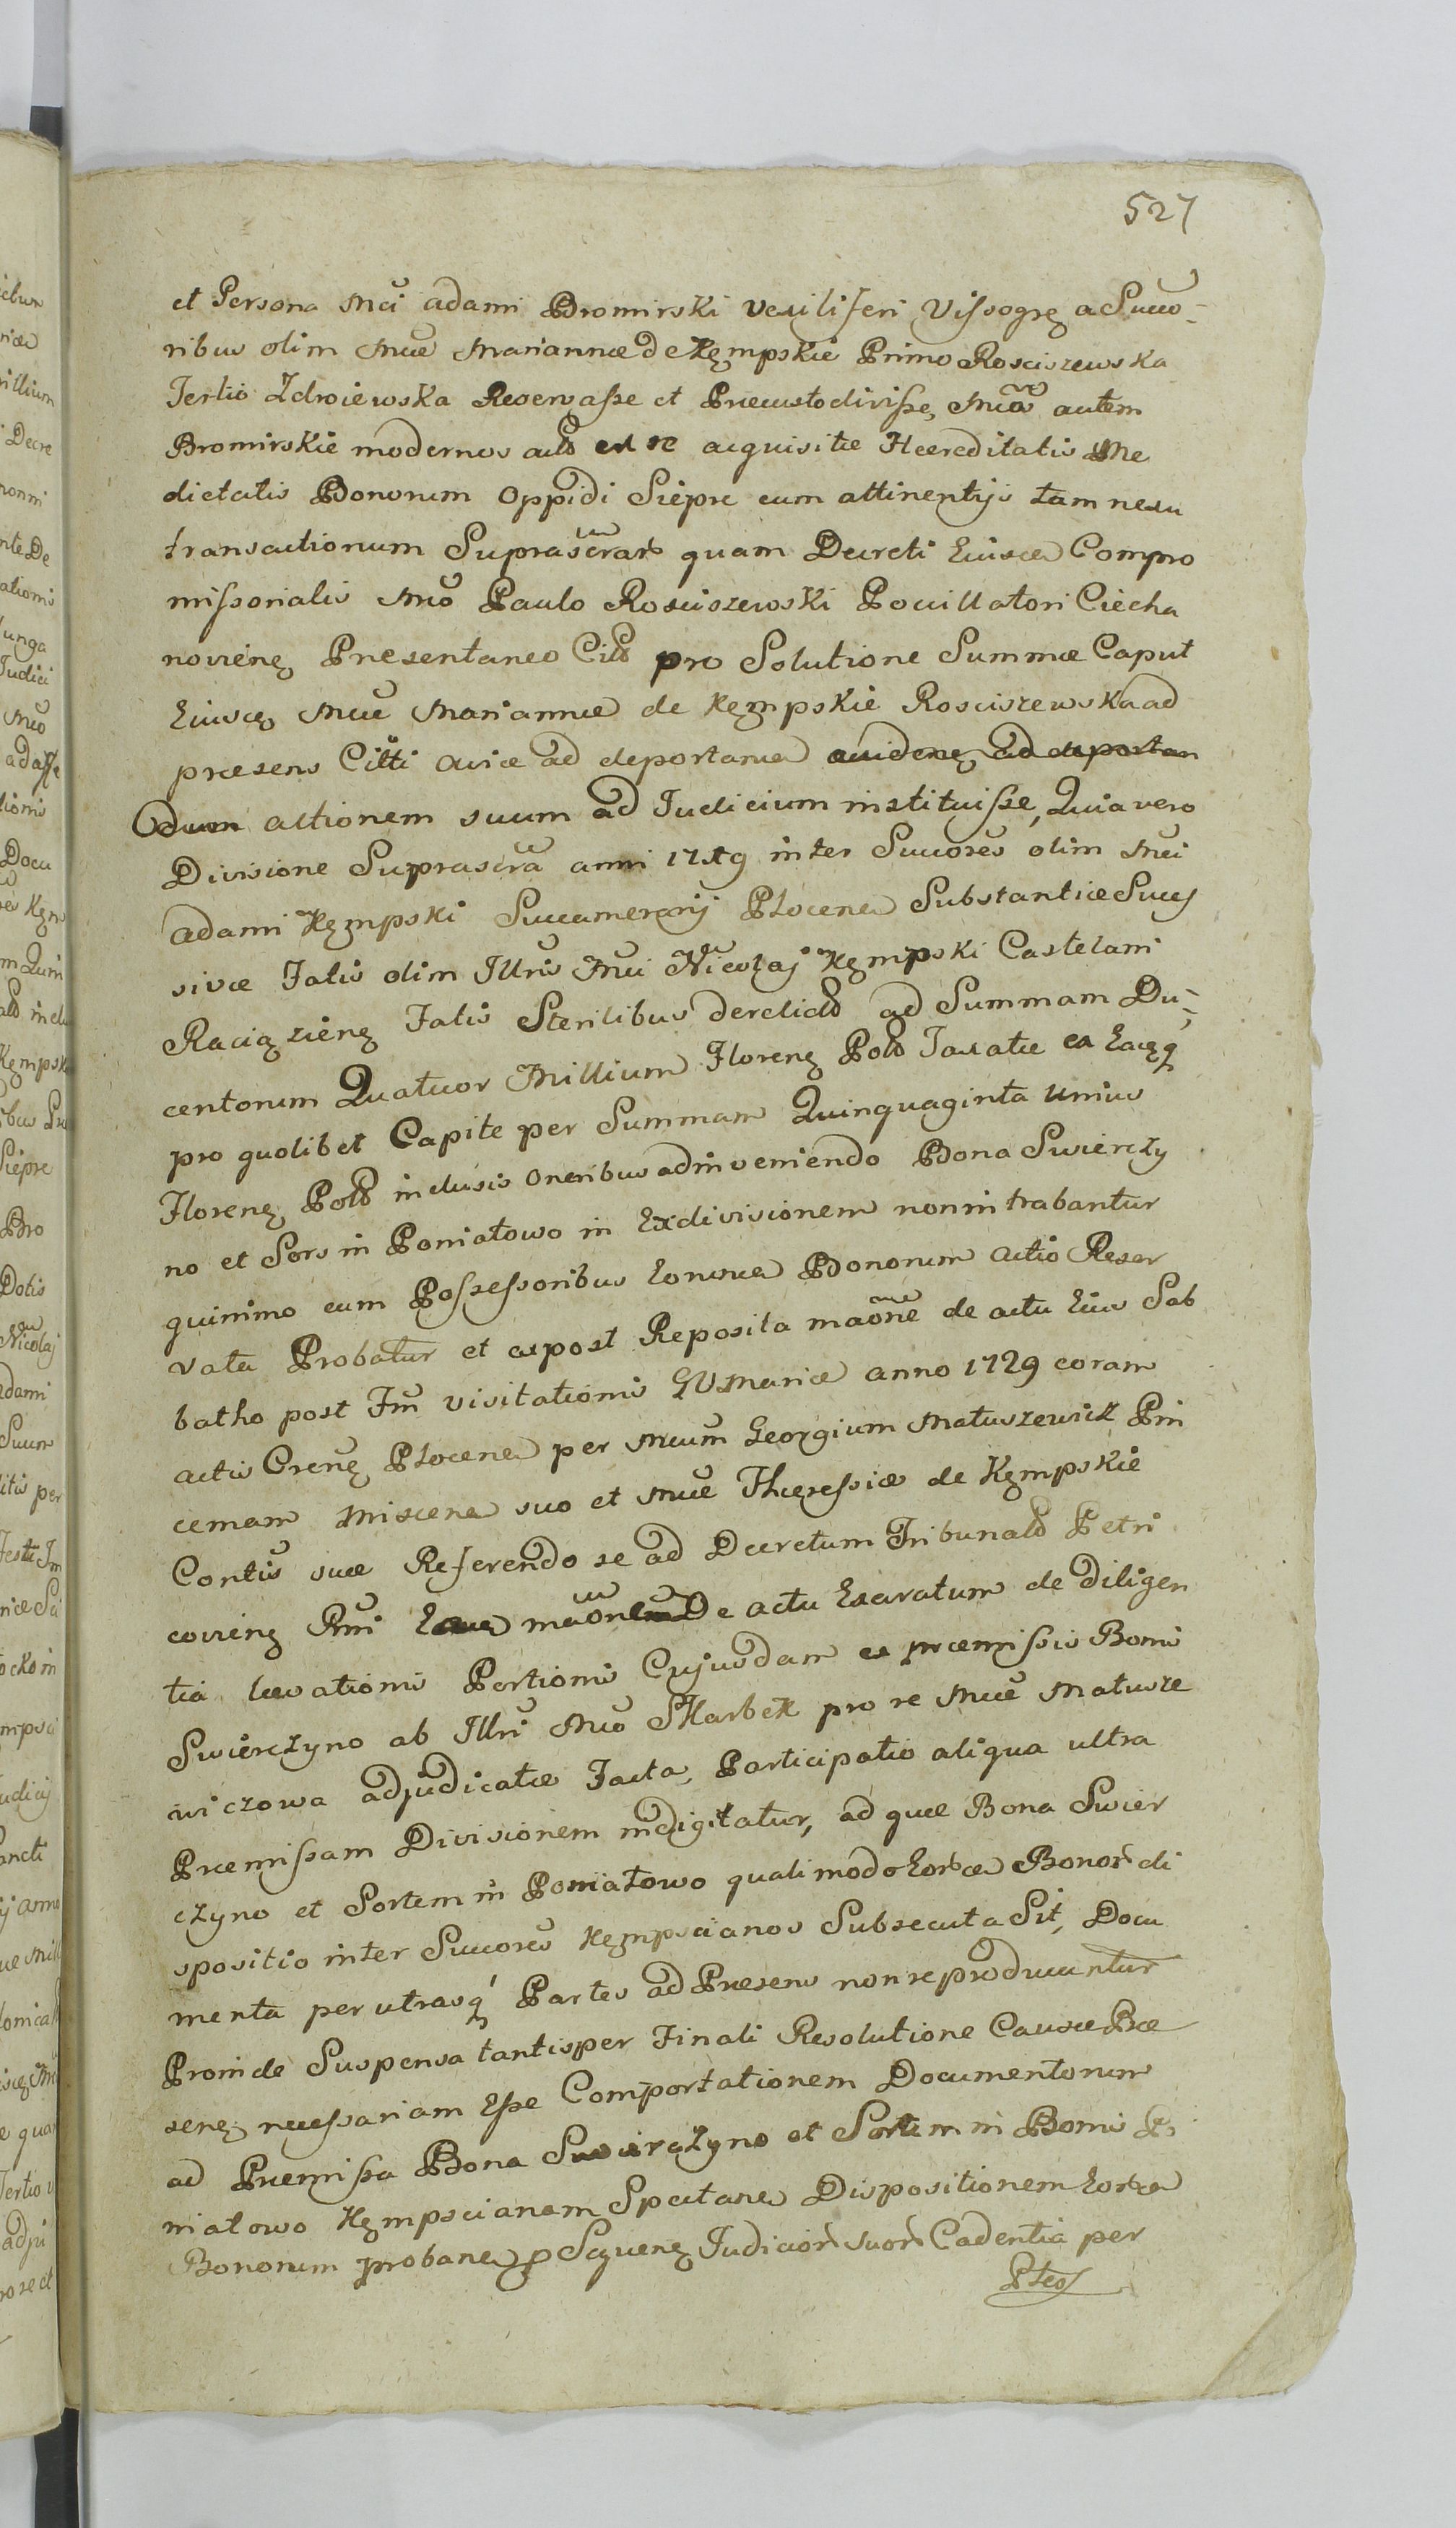 527
et Persona Mci adami Bromirski Vexiliferi Vissogrę a Succo-
ribus olim Mcae Mariannae de Kęmpskie Primo Rosciszewska
Tertio Zdroiewska Reservasse et Praecustodivisse, Mcos autem
Bromirskie modernos act ex re acquisitae Haereditatis Me
dietatis Bonorum Oppidi Sieprc cum attinentijs tam nexu
transactionum Suprascrar quam Decreti Eiusd Compro
missorialis Mco Paulo Rosciszewski Pocillatori Ciecha
novieng Presentaneo Citt pro Solutione Summae Caput
Eiusdę Mcae Mariannae de Kęmpskie Rosciszewska ad
praesens Citti aviae ad deportand
actionem suum ad Judicium instituisse, Quia vero
Divisione Suprascra anni 1719 inter Succores olim Mci
adami Kęmpski Succamerarij Plocen Substantiae Succes
sivae Fatis olim Illris Mci Nicolaj Kęmpski Castelani
Raciązieng Fatis Sterilibus derelict ad Summam Du-
centorum Quatuor Millium Floreng Pol Taxatae ex Eaqq
pro quolibet Capite per Summam Quinquaginta unius
Floreng Pol inclusis oneribus adinveniendo Bona Swierczy
no et Sors in Poniatowo in Exdivisionem non intrabantur
quinimo cum Possessoribus Eorund Bonorum actio Reser
vata Probatur et expost Reposita maone de actu Eius Sab
batho post Fm visitationis GVMariae anno 1729 coram
actis Creng Plocen per Mcum Georgium Matuszewicz Pin
cernam Miscen suo et Mcae Theressiae de Kęmpskie
Contis suae Referendo se ad Decretum Tribunal Petri
covieng Rni maonem De actu Exaratum de diligen
tia levationis Portionis Cujusdam ex praemissis Bonis
Swierczyno ab Illri Mco Skarbek pro re Mcae Matusze
wiczowa adjudicatae Facta, Participatio aliqua ultra
Praemissam Divisionem indigitatur, ad quae Bona Swier
czyno et Sortem in Poniatowo quali modo Eord Bonor di
spositio inter Succores Kęmpscianos Subsecuta Sit, Docu
menta per utrasq Partes ad Praesens non reproducuntur
Proinde Suspensa tantisper Finali Resolutione Causae Prae
seng necessariam Esse Comportationem Documentorum
ad Praemissa Bona Swierczyno et Sortem in Bonis Po
niatowo Kęmpscianam Spectand Dispositionem Eord
Bonorum proband p Sequeng Judicior suor Cadentia per
Ptes